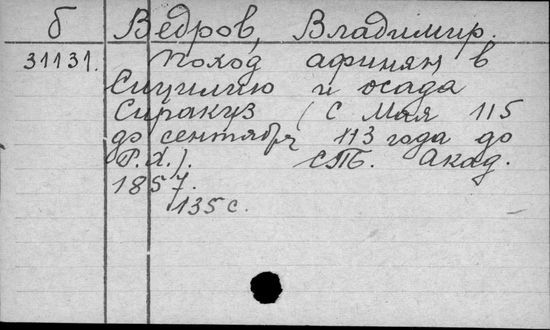 б Ведров, Владимир.
31131. Поход афинян в
Сицилию и осада
Сиракуз (с мая 115
до сентября 113 года до
Р.Х.). СПб. Акад.
1857.
135 с.